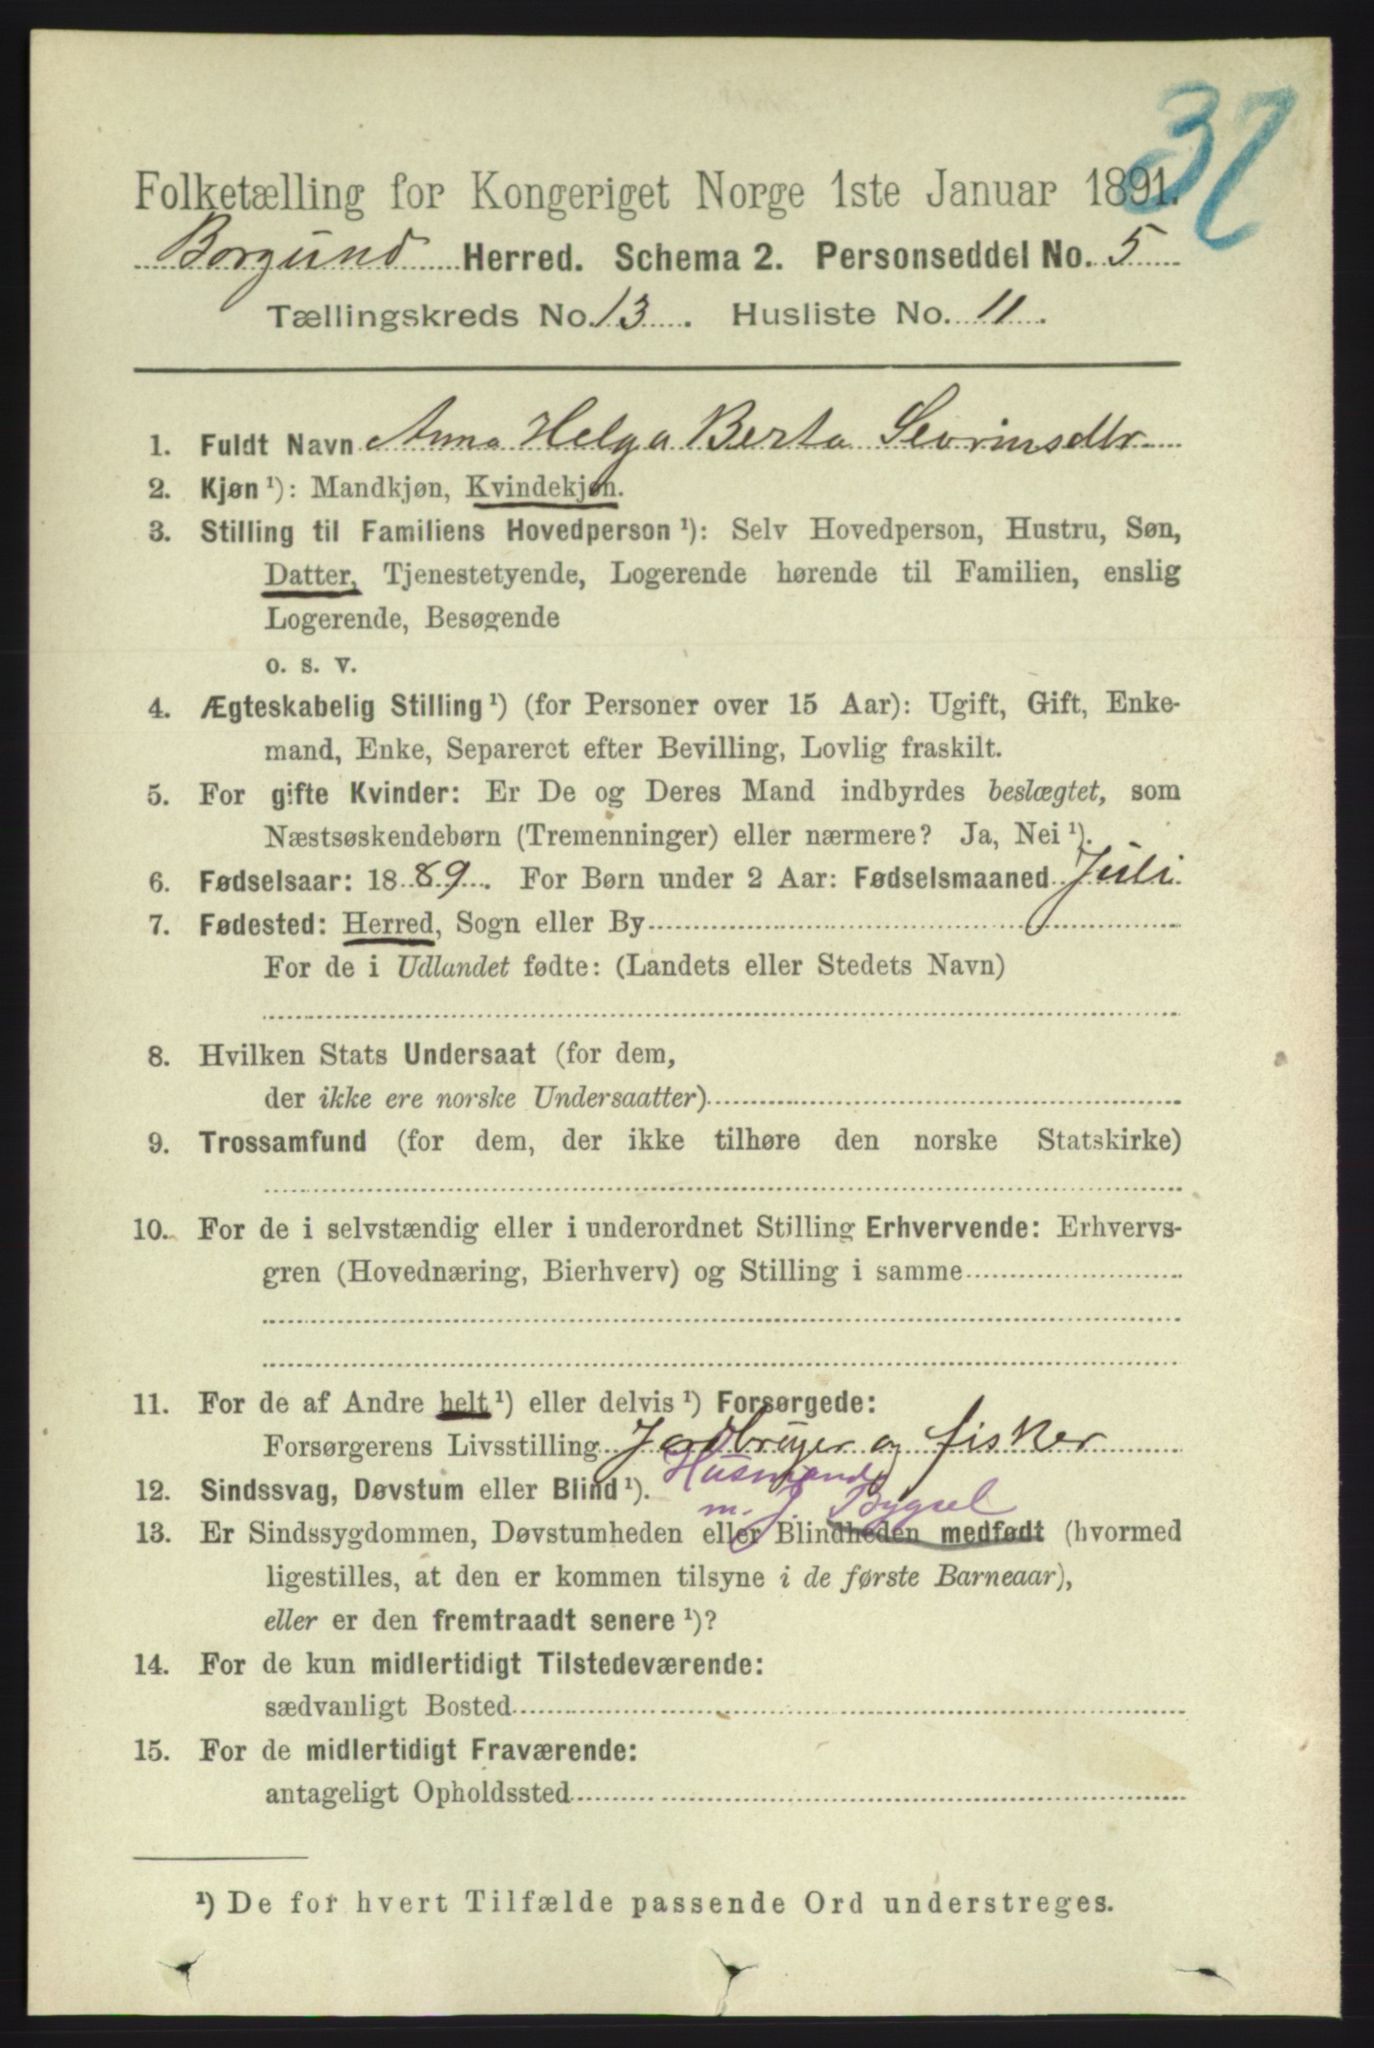 32
Folketælling for Kongeriget Norge 1ste Januar 1891.
Borgund Herred. Schema 2. Personseddel No. 5
Tællingskreds No. 13. Husliste No. 11.
1. Fuldt Navn Anna Helga Berta Sevrinsdtr
2. Kjøn ¹): Mandkjøn, Kvindekjøn.
3. Stilling til Familiens Hovedperson ¹): Selv Hovedperson, Hustru, Søn,
Datter, Tjenestetyende, Logerende hørende til Familien, enslig
Logerende, Besøgende
o. s. v.
4. Ægteskabelig Stilling ¹) (for Personer over 15 Aar): Ugift, Gift, Enke-
mand, Enke, Separeret efter Bevilling, Lovlig fraskilt.
5. For gifte Kvinder: Er De og Deres Mand indbyrdes beslægtet, som
Næstsøskendebørn (Tremenninger) eller nærmere? Ja, Nei ¹).
6. Fødselsaar: 1889. For Børn under 2 Aar: Fødselsmaaned Juli
7. Fødested: Herred, Sogn eller By
For de i Udlandet fødte: (Landets eller Stedets Navn)
8. Hvilken Stats Undersaat (for dem,
der ikke ere norske Undersaatter)
9. Trossamfund (for dem, der ikke tilhøre den norske Statskirke)
10. For de i selvstændig eller i underordnet Stilling Erhvervende: Erhvervs-
gren (Hovednæring, Bierhverv) og Stilling i samme
11. For de af Andre helt ¹) eller delvis ¹) Forsørgede:
Forsørgerens Livsstilling Jordbruger og fisker
Husmand
12. Sindssvag, Døvstum eller Blind ¹).
m. J. Bygsel
13. Er Sindssygdommen, Døvstumheden eller Blindheden medfødt (hvormed
ligestilles, at den er kommen tilsyne i de første Barneaar),
eller er den fremtraadt senere ¹)?
14. For de kun midlertidigt Tilstedeværende:
sædvanligt Bosted
15. For de midlertidigt Fraværende:
antageligt Opholdssted
¹) De for hvert Tilfælde passende Ord understreges.